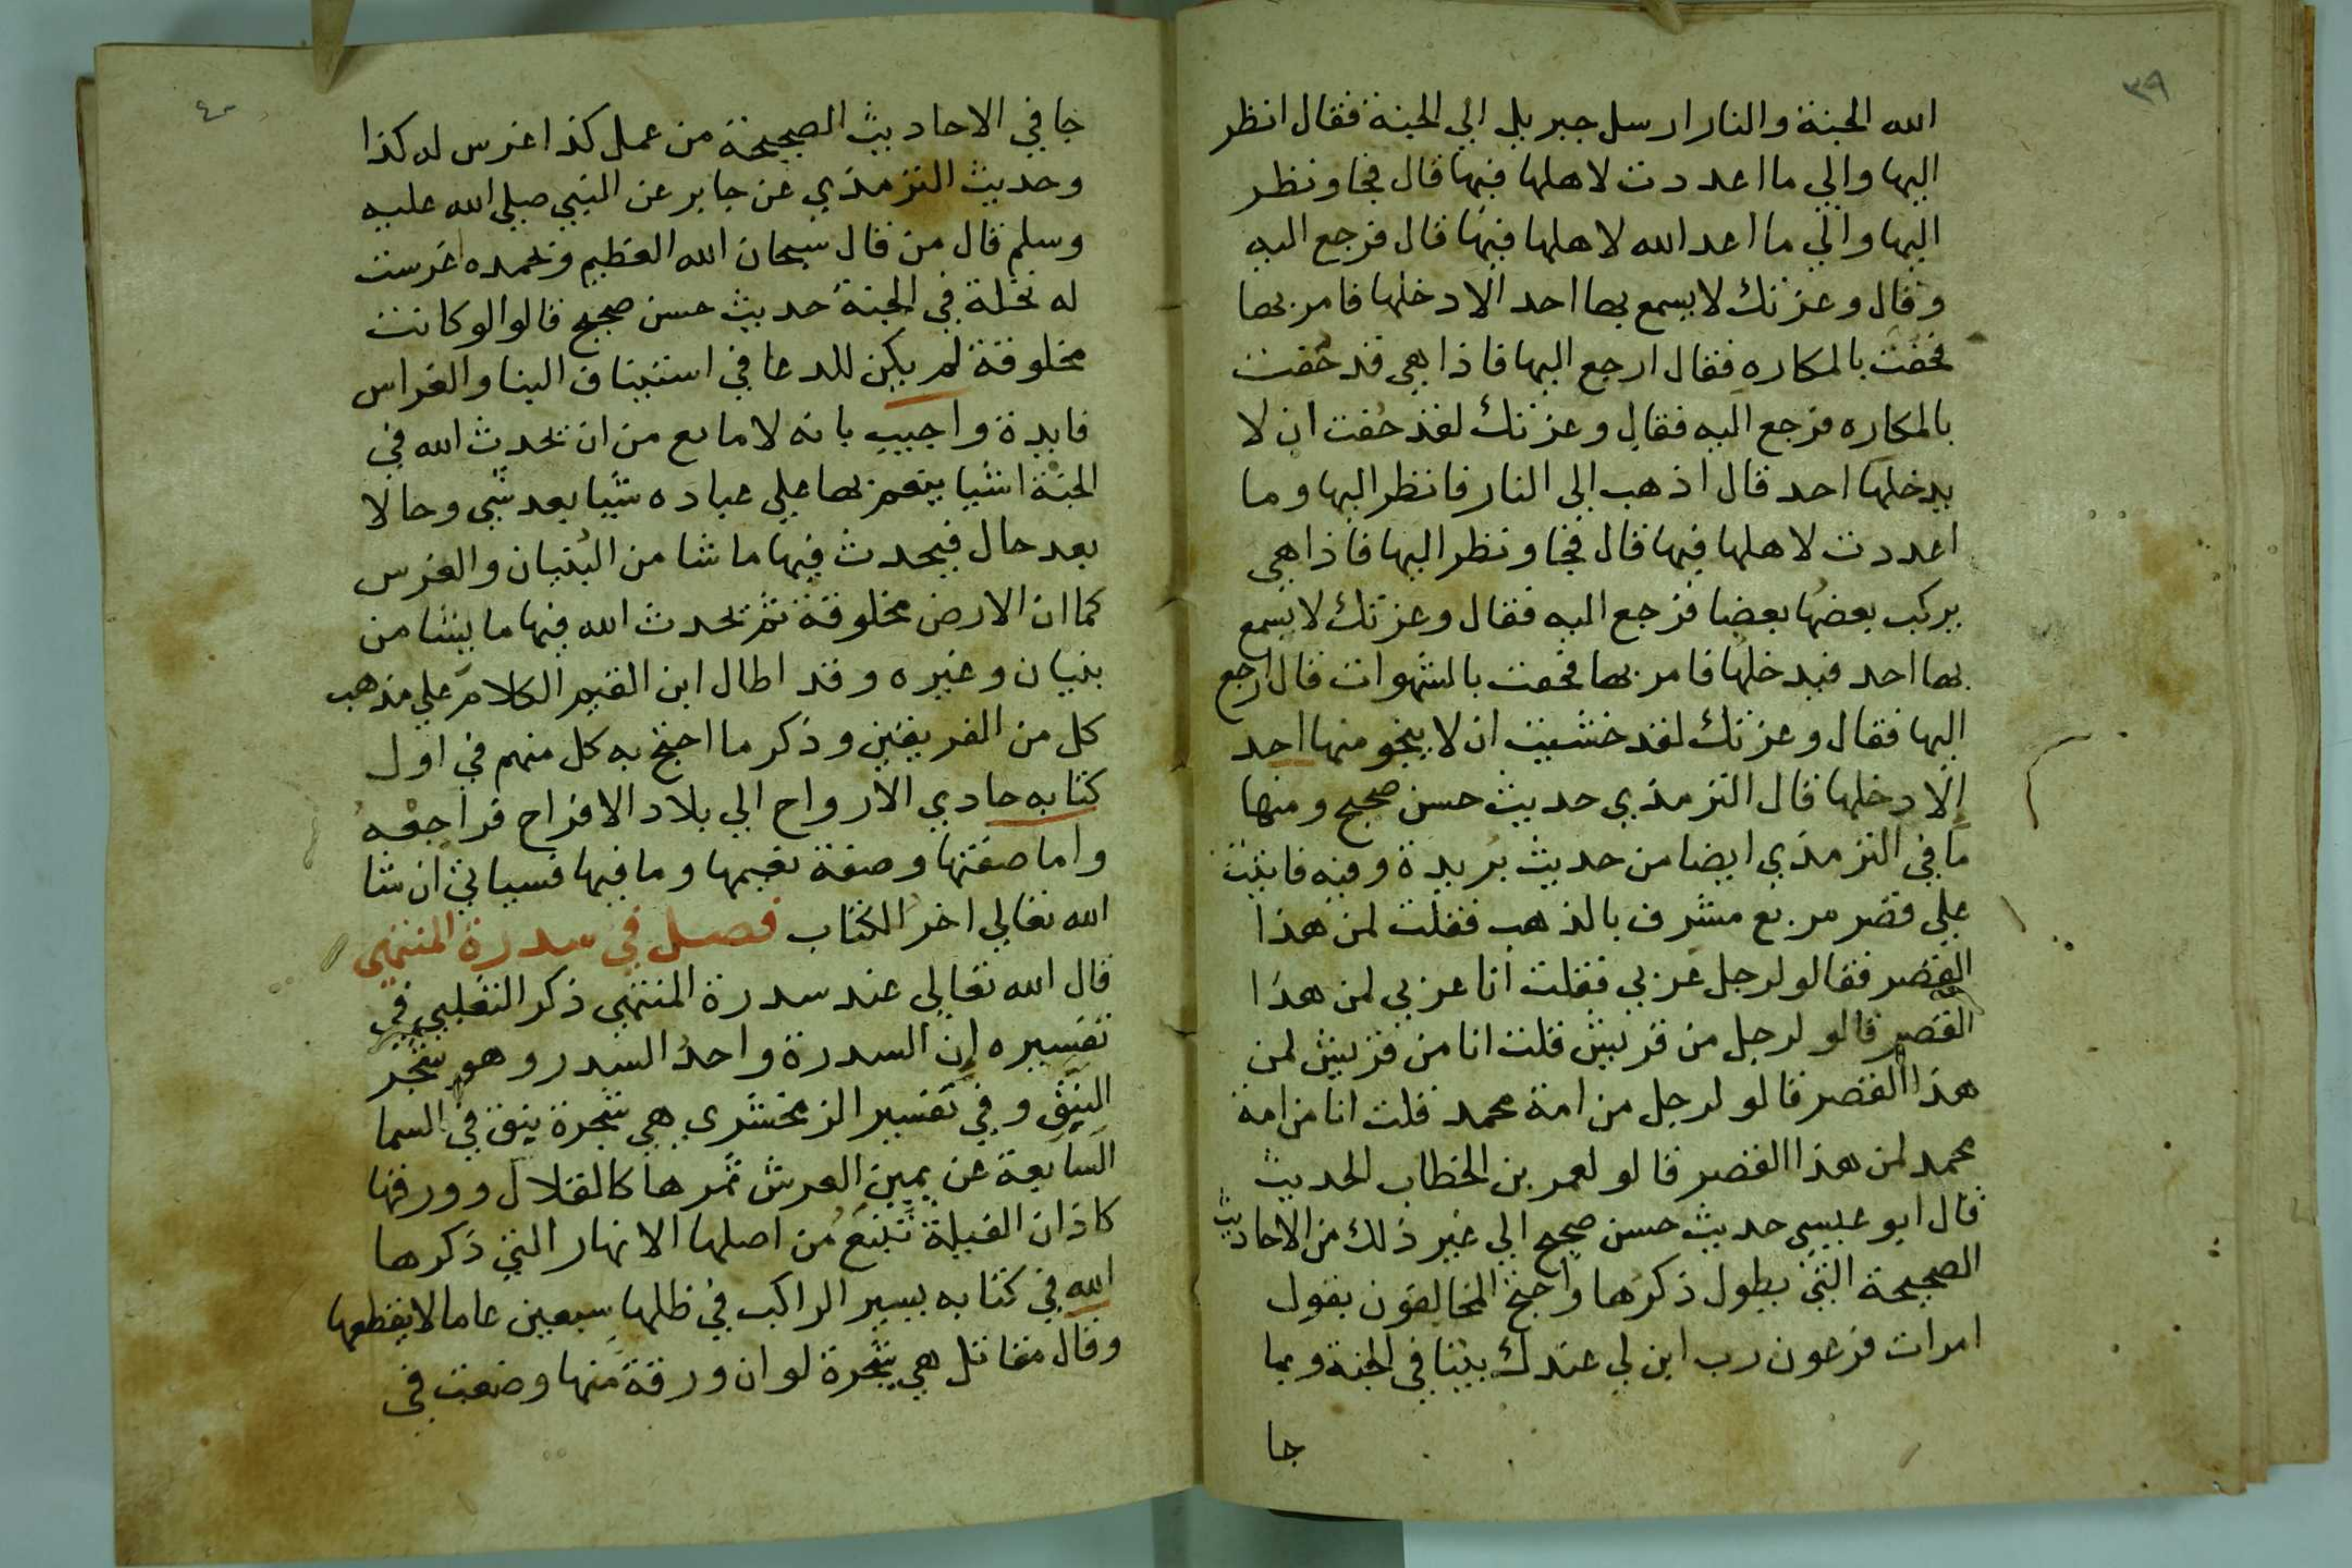 ٣٩
الله الجنة والنار ارسل جبريل الي الجنة فقال انظر
اليها والي ما اعددت لاهلها فيها قال فجا ونظر
اليها والي ما اعد الله لاهلها فيها قال فرجع اليه
وقال وعزتك لا يسمع بها احد الا دخلها فامر بها
فحفت بالمكاره فقال ارجع اليها فاذا هي قد حُفت
بالمكاره فرجع اليه فقال وعزتك لقد حُفت ان لا
يدخلها احد قال اذهب الي النار فانظر اليها وما
اعددت لاهلها فيها قال فجا ونظر اليها فاذا هي
يركب بعضُها بعضا فرجع اليه فقال وعزتك لا يسمع
بها احد فيدخلها فامر بها فحفت بالشهوات قال ارجع
اليها فقال وعزتك لقد خشيت ان لا ينجو منها احد
الا دخلها قال الترمذي حديث حسن صحيح ومنها
ما في الترمذي ايضا من حديث بُريدة وفيه فاتيت
علي قصر مربع مشرف بالذهب فقلت لمن هذا
القصر فقالو لرجل عربي فقلت انا عربي لمن هذا
القصر قالو لرجل من قريش قلت انا من قريش لمن
هذا القصر قالو لرجل من امة محمد قلت انا من امة
محمد لمن هذا القصر قالو لعمر بن الخطاب الحديث
قال ابو عيسي حديث حسن صحيح الي غير ذلك من الاحاديث
الصحيحة التي يطول ذكرها واحتج المخالفون بقول
امرات فرعون رب ابن لي عندك بيتا في الجنة وبما
جا
٤٠
جا في الاحاديث الصحيحة من عمل كذا غرس له كذا
وحديث الترمذي عن جابر عن النبي صلي الله عليه
وسلم قال من قال سبحان الله العظيم وبحمده غرست
له نخلة في الجنة حديث حسن صحيح قالوا لو كانت
مخلوقة لم يكن للدعا في استيناف البنا والغراس
فايدة واجيب بانه لا مانع من ان يحدث الله في
الجنة اشيا ينعم بها علي عباده شيا بعد شي وحالا
بعد حال فيحدث فيها ما شا من البُنيان والغرس
كما ان الارض مخلوقة ثم يحدث الله فيها ما يشا من
بنيان وغيره وقد اطال ابن القيم الكلام علي مذهب
كل من الفريقين وذكر ما احتج به كل منهم في اول
كتابه حادي الارواح الي بلاد الافراح فراجعه
واما صفتها وصفة نعيمها وما فيها فسياتي ان شا
الله تعالي اخر الكتاب فصل في سدرة المنتهي
قال الله تعالي عند سدرة المنتهي ذكر الثعلبي في
تفسيره ان السدرة واحدُ السدر وهو شجر
النبق وفي تفسير الزمخشري هي شجرة نبق في السما
السابعة عن يمين العرش ثمرها كالقلال وورقها
كاذان الفيلة تنبع من اصلها الانهار التي ذكرها
الله في كتابه يسير الراكب في ظلها سبعين عاما لا يقطعها
وقال مقاتل هي شجرة لو ان ورقة منها وضعت في